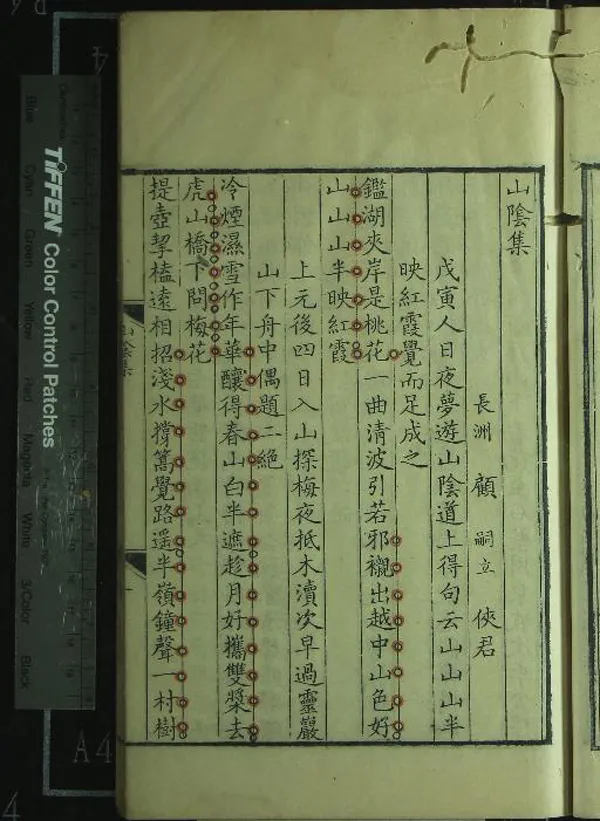 山陰集
長洲 顧嗣立 俠君
戊寅人日夜夢遊山陰道上得句云山山山半
映紅霞覺而足成之
鑑湖夾岸是桃花一曲清波引若邪襯出越中山色好
山山山半映紅霞
上元後四日入山探梅夜抵木瀆次早過靈巖
山下舟中偶題二絶
冷煙濕雪作年華釀得春山白半遮趁月好攜雙槳去
虎山橋下問梅花
提壺挈榼遠相招淺水撐篙覺路遥半嶺鐘聲一村樹
TIFFEN Color Control Patches
Blue
Cyan
Green
Yellow
Red
Magenta
White
3/Color
Black
Centimetres
A4